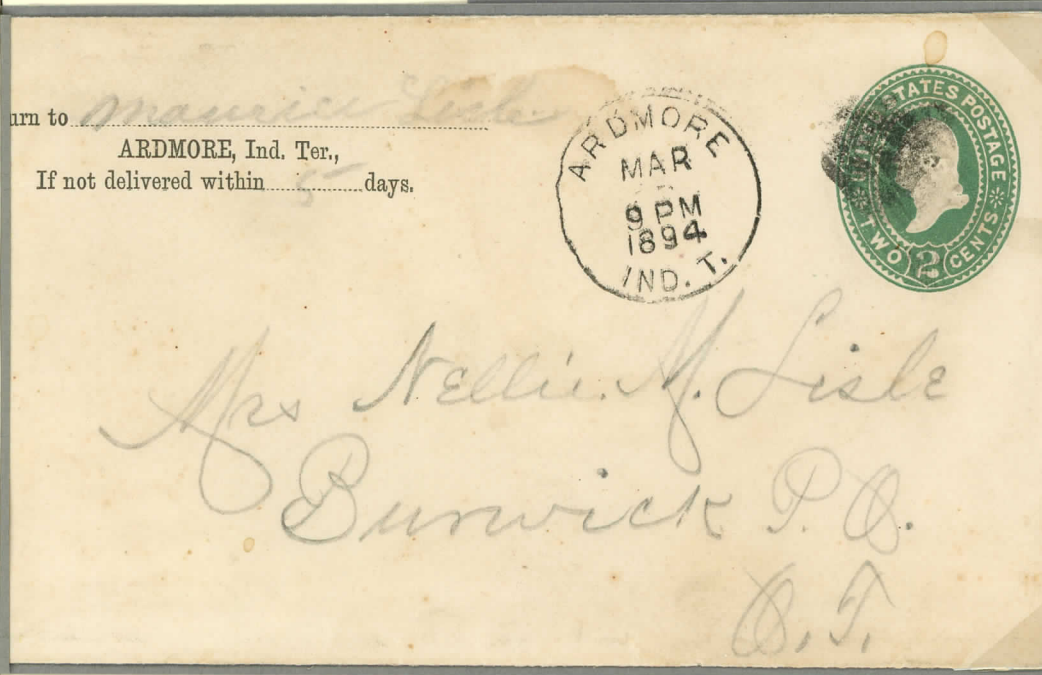 urn to Maurice Lisle
ARDMORE, Ind. Ter.,
If not delivered within 5 days.
ARDMORE
MAR
9 PM
1894
IND. T.
STATES POSTAGE
TWO 2 CENTS
Mrs Nellie M. Lisle
Burwick P.O.
O.T.